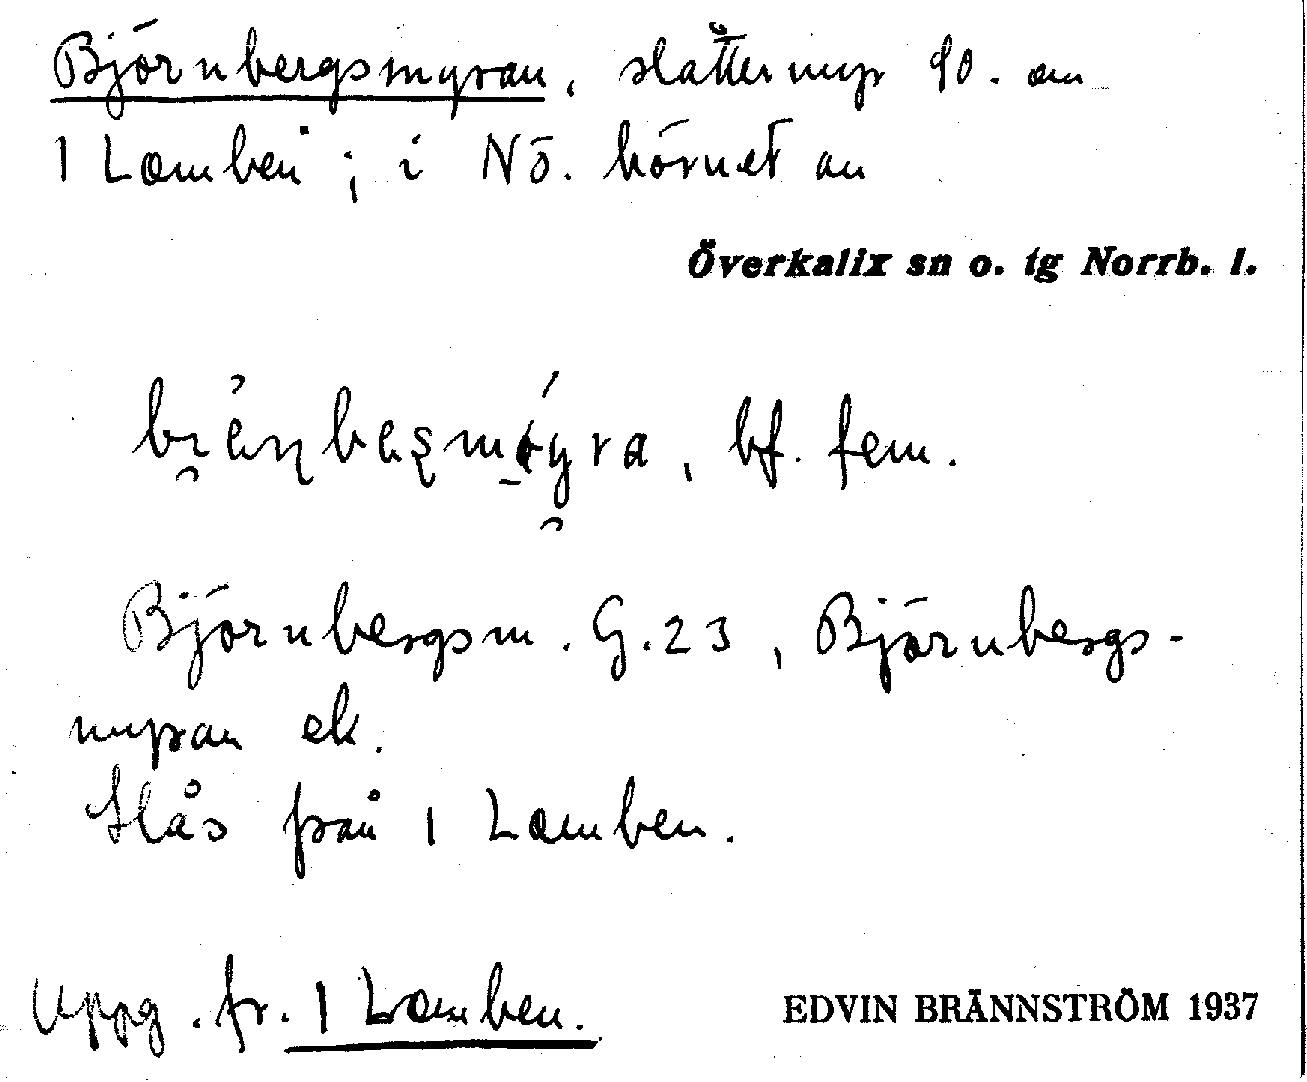 Björnbergsmyran, slåttermyr SO. om
1 Lomben; i NÖ. hörnet av
Överkalix sn o. tg Norrb. l.
bf. fem.
Björnbergsm. G.23, Björnbergs-
myran ek.
Slås från 1 Lomben.
Uppg. fr. 1 Lomben.
EDVIN BRÄNNSTRÖM 1937